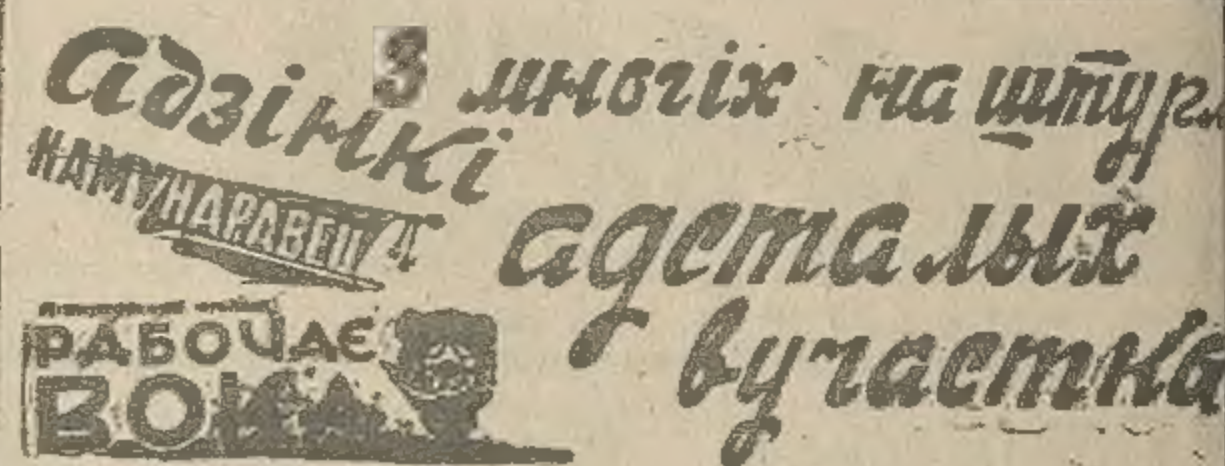 Адзінкі з многіх на штурм
адсталых
вучастка
КАМУНАРАВЕЦ
РАБОЧАЕ
ВОКА